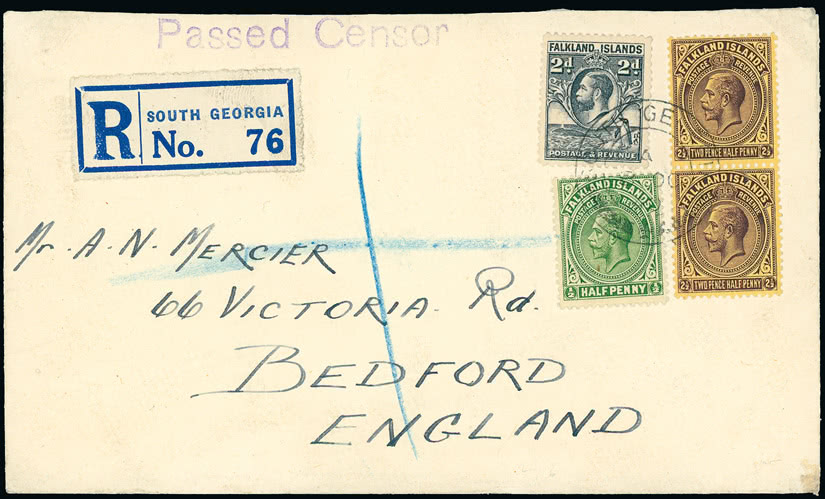 Passed Censor
R SOUTH GEORGIA
No. 76
FALKLAND ISLANDS
2d 2d
POSTAGE & REVENUE
FALKLAND ISLANDS
POSTAGE REVENUE
2½ TWO PENCE HALF PENNY 2½
FALKLAND ISLANDS
POSTAGE REVENUE
½ HALF PENNY ½
FALKLAND ISLANDS
POSTAGE REVENUE
2½ TWO PENCE HALF PENNY 2½
Mr. A. N. MERCIER
66 VICTORIA Rd.
BEDFORD
ENGLAND